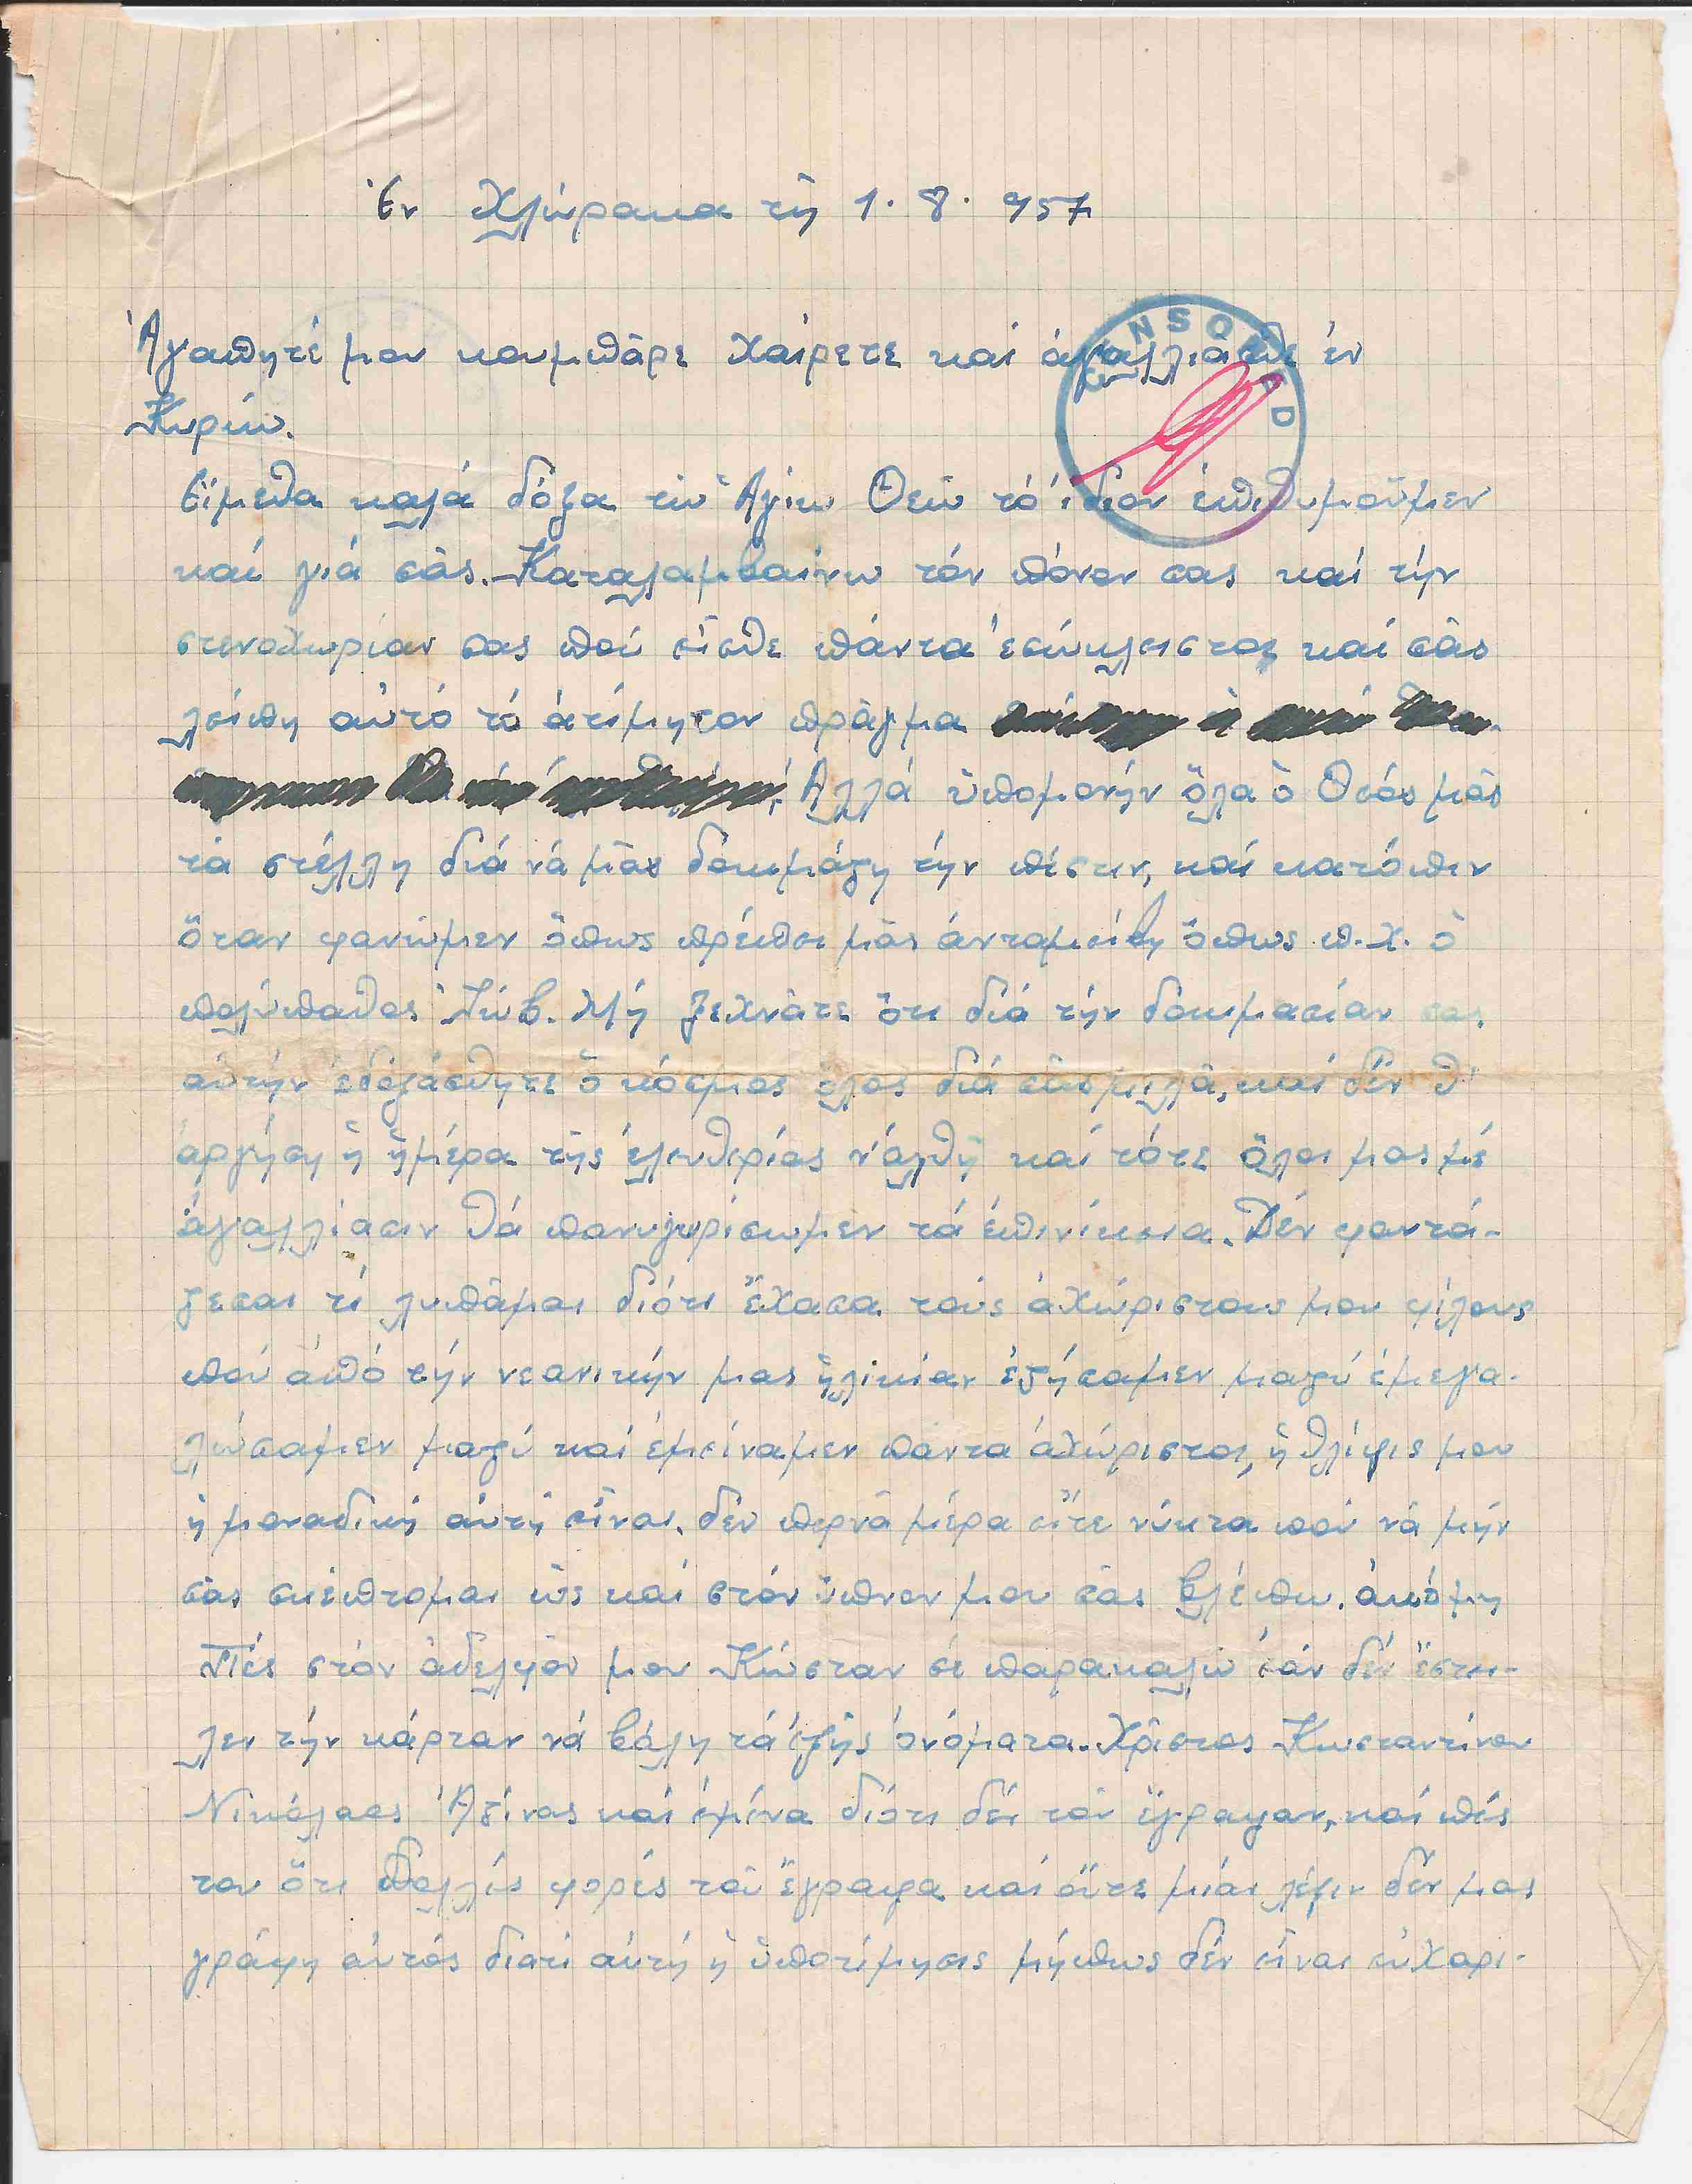 Ἐν Χλώρακα τῇ 1. 8. 957
CENSORED
Ἀγαπητέ μου κουμπᾶρε χαίρετε καί ἀγαλλιᾶσθε ἐν
Κυρίω.
Εἴμεθα καλά δόξα τῷ Ἁγίω Θεῷ τό ἴδιον ἐπιθυμοῦμεν
καί γιά σᾶς. Καταλαμβαίνω τόν πόνον σας καί τήν
στενοχωρίαν σας πού εἶσθε πάντα ἐσώκλειστος καί σᾶς
λείπη αὐτό τό ἀτίμητον πρᾶγμα
Ἀλλά ὑπομονήν ὅλα ὁ Θεός μᾶς
τά στέλλη διά νά μᾶς δοκιμάζη τήν πίστιν, καί κατόπιν
ὅταν φανῶμεν ὅπως πρέπει μᾶς ἀνταμείβη ὅπως π.χ. ὁ
πολύπαθος Ἰώβ. Μή ξεχνᾶτε ὅτι διά τήν δοκιμασίαν σας
αὐτήν ἐδοξάσθητε ὁ κόσμος ὅλος διά σᾶς μιλᾶ, καί δέν θ'
ἀργήση ἡ ἡμέρα τῆς ἐλευθερίας ν' ἀλθῆ καί τότε ὅλοι μας μέ
ἀγαλλίασιν θά πανυγυρίσωμεν τά ἐπινίκεια. Δέν φαντά-
ζεσαι τί λυπᾶμαι διότι ἔχασα τούς ἀχώριστους μου φίλους
πού ἀπό τήν νεανικήν μας ἡλικίαν ἐζήσαμεν μαζύ ἐμεγα-
λώσαμεν μαζύ καί ἐμείναμεν πάντα ἀχώριστοι, ἡ θλίψις μου
ἡ μοναδική αὐτή εἶναι. δέν περνᾶ μέρα εἴτε νύκτα πού νά μήν
σᾶς σκέπτομαι ὡς καί στόν ὕπνον μου σᾶς βλέπω. ἀκόμη
Πές στόν ἀδελφόν μου Κώσταν σέ παρακαλῶ ἐάν δέν ἔστει-
λεν τήν κάρταν νά βάλη τά ἑξῆς ὀνόματα. Χρῖστος Κωσταντίνου
Νικόλαος Ἀζίνας καί ἐμένα διότι δέν τόν ἔγραψαν, καί πές
του ὅτι πολλές φορές τοῦ ἔγραψα καί οὔτε μίαι λέξιν δέν μας
γράφη αὐτός διατί αὐτή ἡ ὑποτίμησις μήπως δέν εἶναι εὐχαρι-